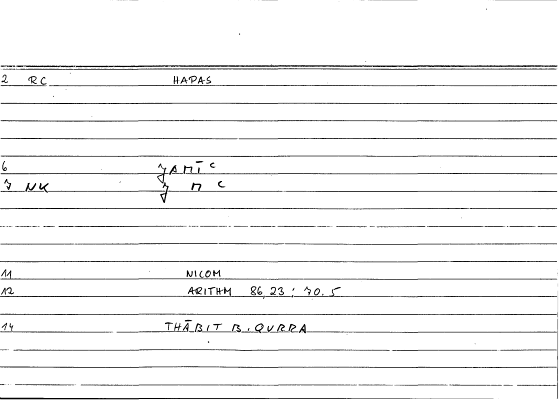 2 RC HAPAS
6 ǦAMĪʿ
7 NK Ǧ M ʿ
11 NICOM
12 ARITHM 86,23 ; 70.5
14 THĀBIT B. QURRA